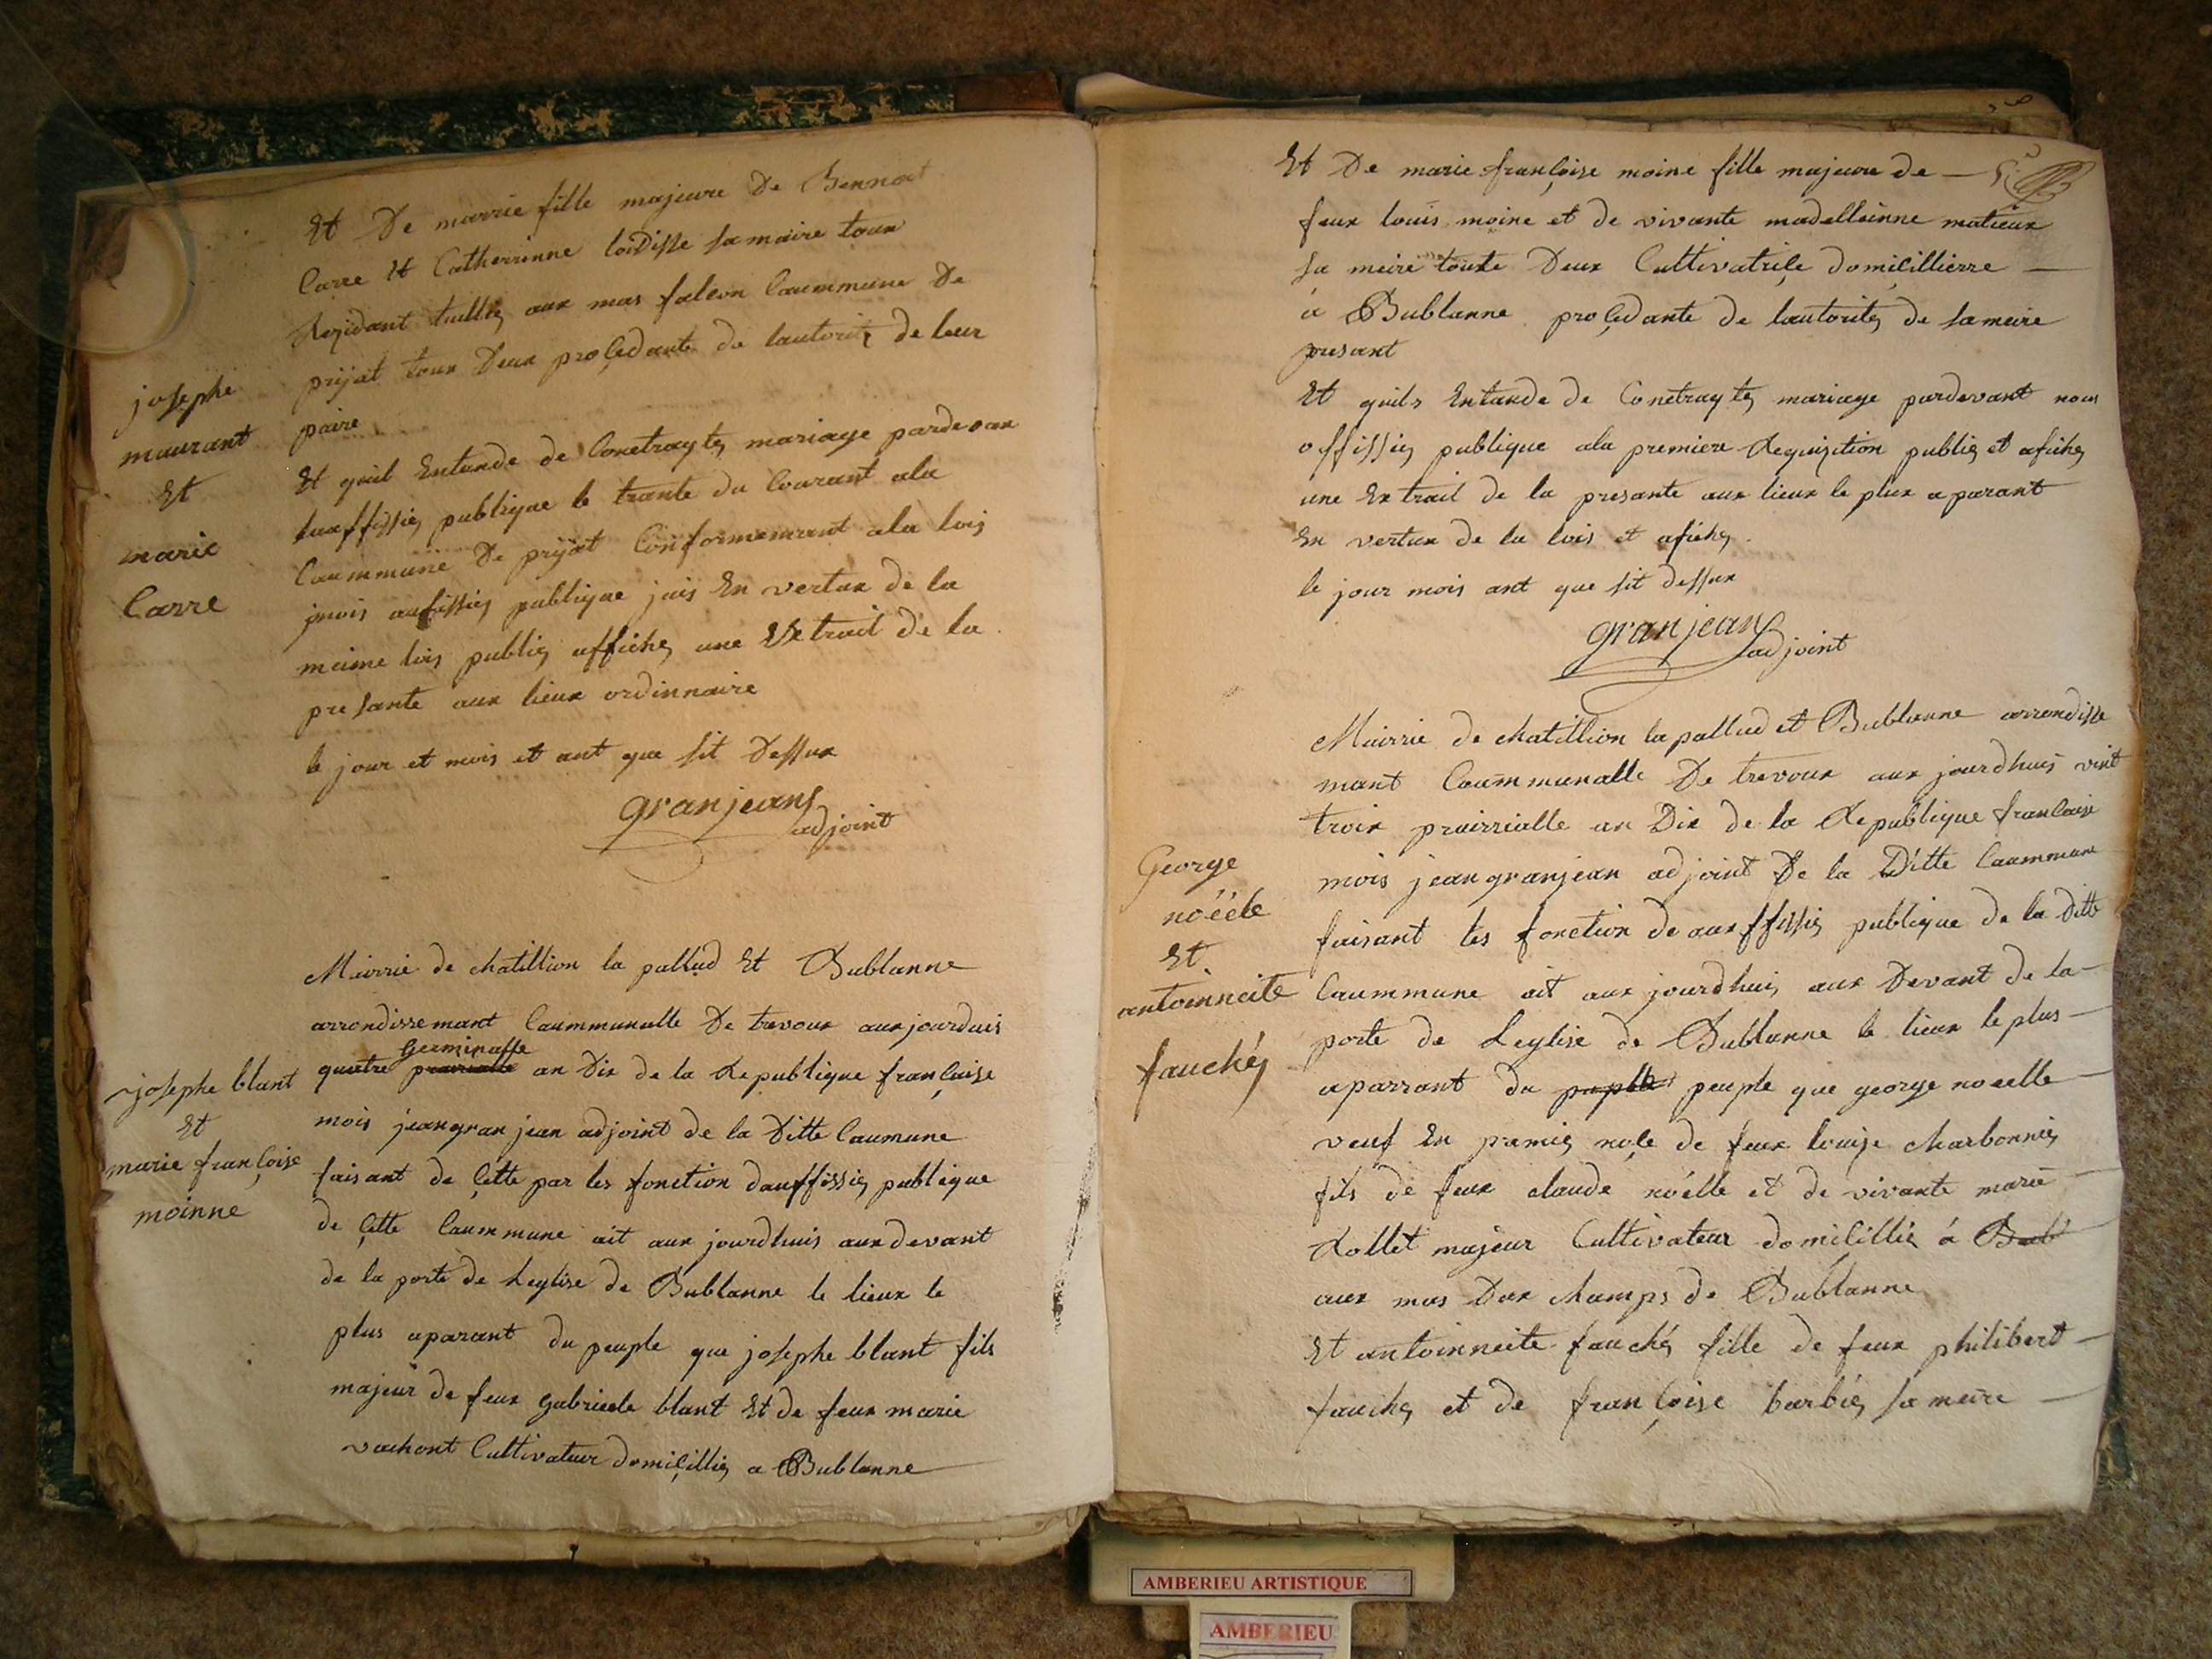 Et De marrie fille majeure De Bennoit
Carre Et Catherinne loidisse sa maire toux
Rezidant tuilliez aux mas falcon Caummune De
prijat toux Deux proçedante de lautoritez de leur
paire
Et quil Entande de Conetraytez mariage pardevan
lauffissiez publique le trante du Courant ala
Caummune De prijat Conformemant ala lois
mois auffissiez publique jais En vertux de la
maime lois publiez affichez une Extrait de la
presante aux lieux ordinnaire
le jour et mois et ant que sit Dessux
granjean
adjoint
josephe
maurant
Et
marie
Carre
Mairrie de chatillion la pallud Et Bublanne
arrondissemant Caummunalle De trevoux aux jourduis
Germinalle
quatre prairialle an Dix de la Republique françaize
mois jean gran jean adjoint de la Ditte Caumune
faisant de Çette par les fonction dauffissiez publique
de Çette Caummune ait aux jourdhuis aux devant
de la porte de Leglise de Bublanne le lieux le
plus aparant du peuple que josephe blant fils
majeur de feux gabrieele blant Et de feux marie
vachont Cultivateur domiçilliez a Bublanne
josephe blant
Et
marie françoise
moinne
Et De marie françoise moine fille majeure de
feux louis moine et de vivante madelleinne matieux
sa meire toute Deux Cultivatriçe domiçillierre
à Bublanne proçedante de lautoritez de sa meire
presant
Et quils Entande de Conetraytez mariage pardevant nous
offissiez publique ala premiere Requizition publiez et afichez
une Extrait de la presante aux lieux le plux aparant
En vertux de la lois et afichez
le jour mois ant que sit dessux
granjean
adjoint
Mairrie de chatillion la pallud et Bublanne arrondisse
mant Caummunalle De trevoux aux jourdhuis vint
troix prairrialle an Dix de la Republique francaise
mois jean granjean adjoint De la Ditte Caummune
faisant les fonction de auxffissiez publique de la ditte
Caummune ait aux jourdhuis aux Devant de la
porte de Leglise de Bublanne le lieux le plus
aparrant du puplle peuple que george noeelle
veuf En premiez noçe de feux louise charbonniez
fils de feux claude noélle et de vivante marie
Rollet majeur Cultivateur domicilliez á Bub
aux mas Dux champs de Bublanne
Et antoinneite fauchéz fille de feux philibert
fauchez et de françoise barbiez sa meire
George
noééle
Et
antoinneite
fauchéz
AMBERIEU ARTISTIQUE
AMBERIEU